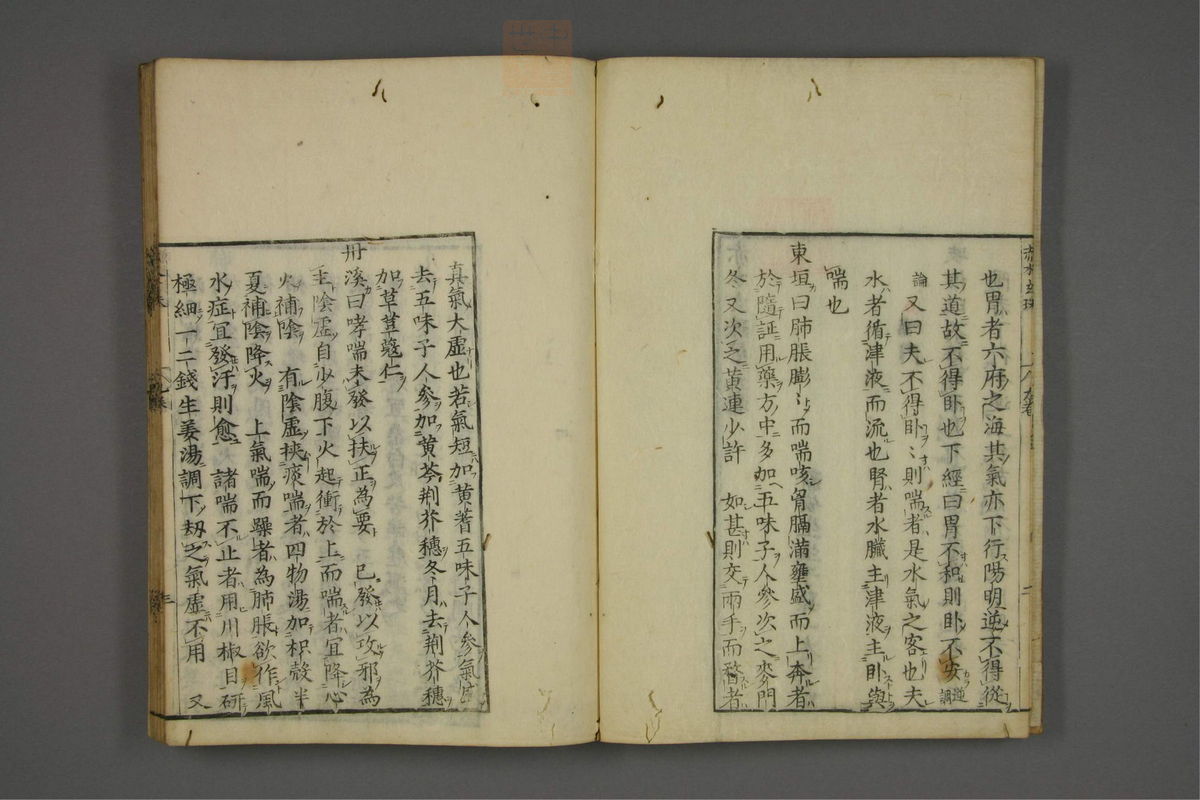 也胃者六府之海其氣亦下行陽明逆不得從
其道故不得卧也下經曰胃不和則卧不安逆調
論又曰夫不得卧〻則喘者是水氣之客也夫
水者循津液而流也腎者水臟主津液主卧與
喘也
東垣曰肺脹膨〻而喘咳胷膈滿壅盛而上奔者
於隨証用藥方中多加五味子人參次之麥門
冬又次之黄連少許 如甚則交兩手而瞀者
真氣大虛也若氣短加黄耆五味子人參氣盛
去五味子人參加黄芩荆芥穗冬月去荆芥穗
加草荳蔻仁
丹溪曰哮喘未發以扶正為要 已發以攻邪為
主 陰虛自少腹下火起衝於上而喘者宜降心
火補陰 有陰虛挾痰喘者四物湯加枳殼半
夏補陰降火 上氣喘而躁者為肺脹欲作風
水症宜發汗則愈 諸喘不止者用川椒目研
極細一二錢生姜湯調下劫之氣虛不用 又